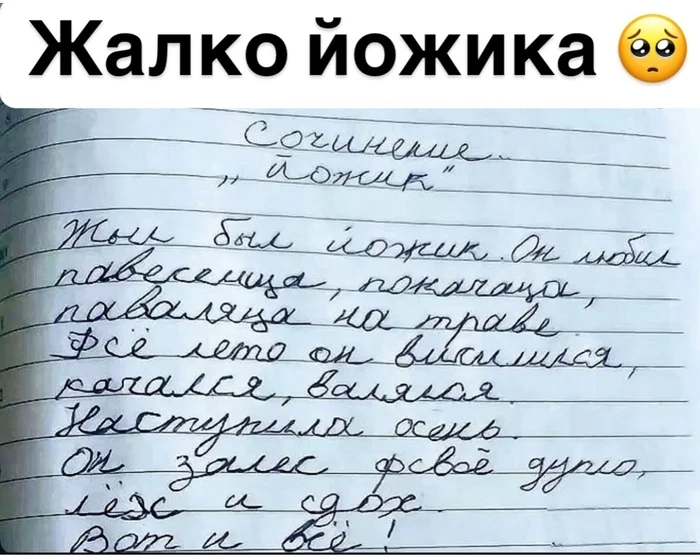 Жалко йожика 🥺
Сочинение.
„йожик"
Жыл был йожик. Он любил
павеселица, покачаца,
паваляца на траве.
Фсё лето он висилился,
качался, валялся.
Наступила осень.
Он залес фсваё дупло,
лёх и сдох.
Вот и всё!